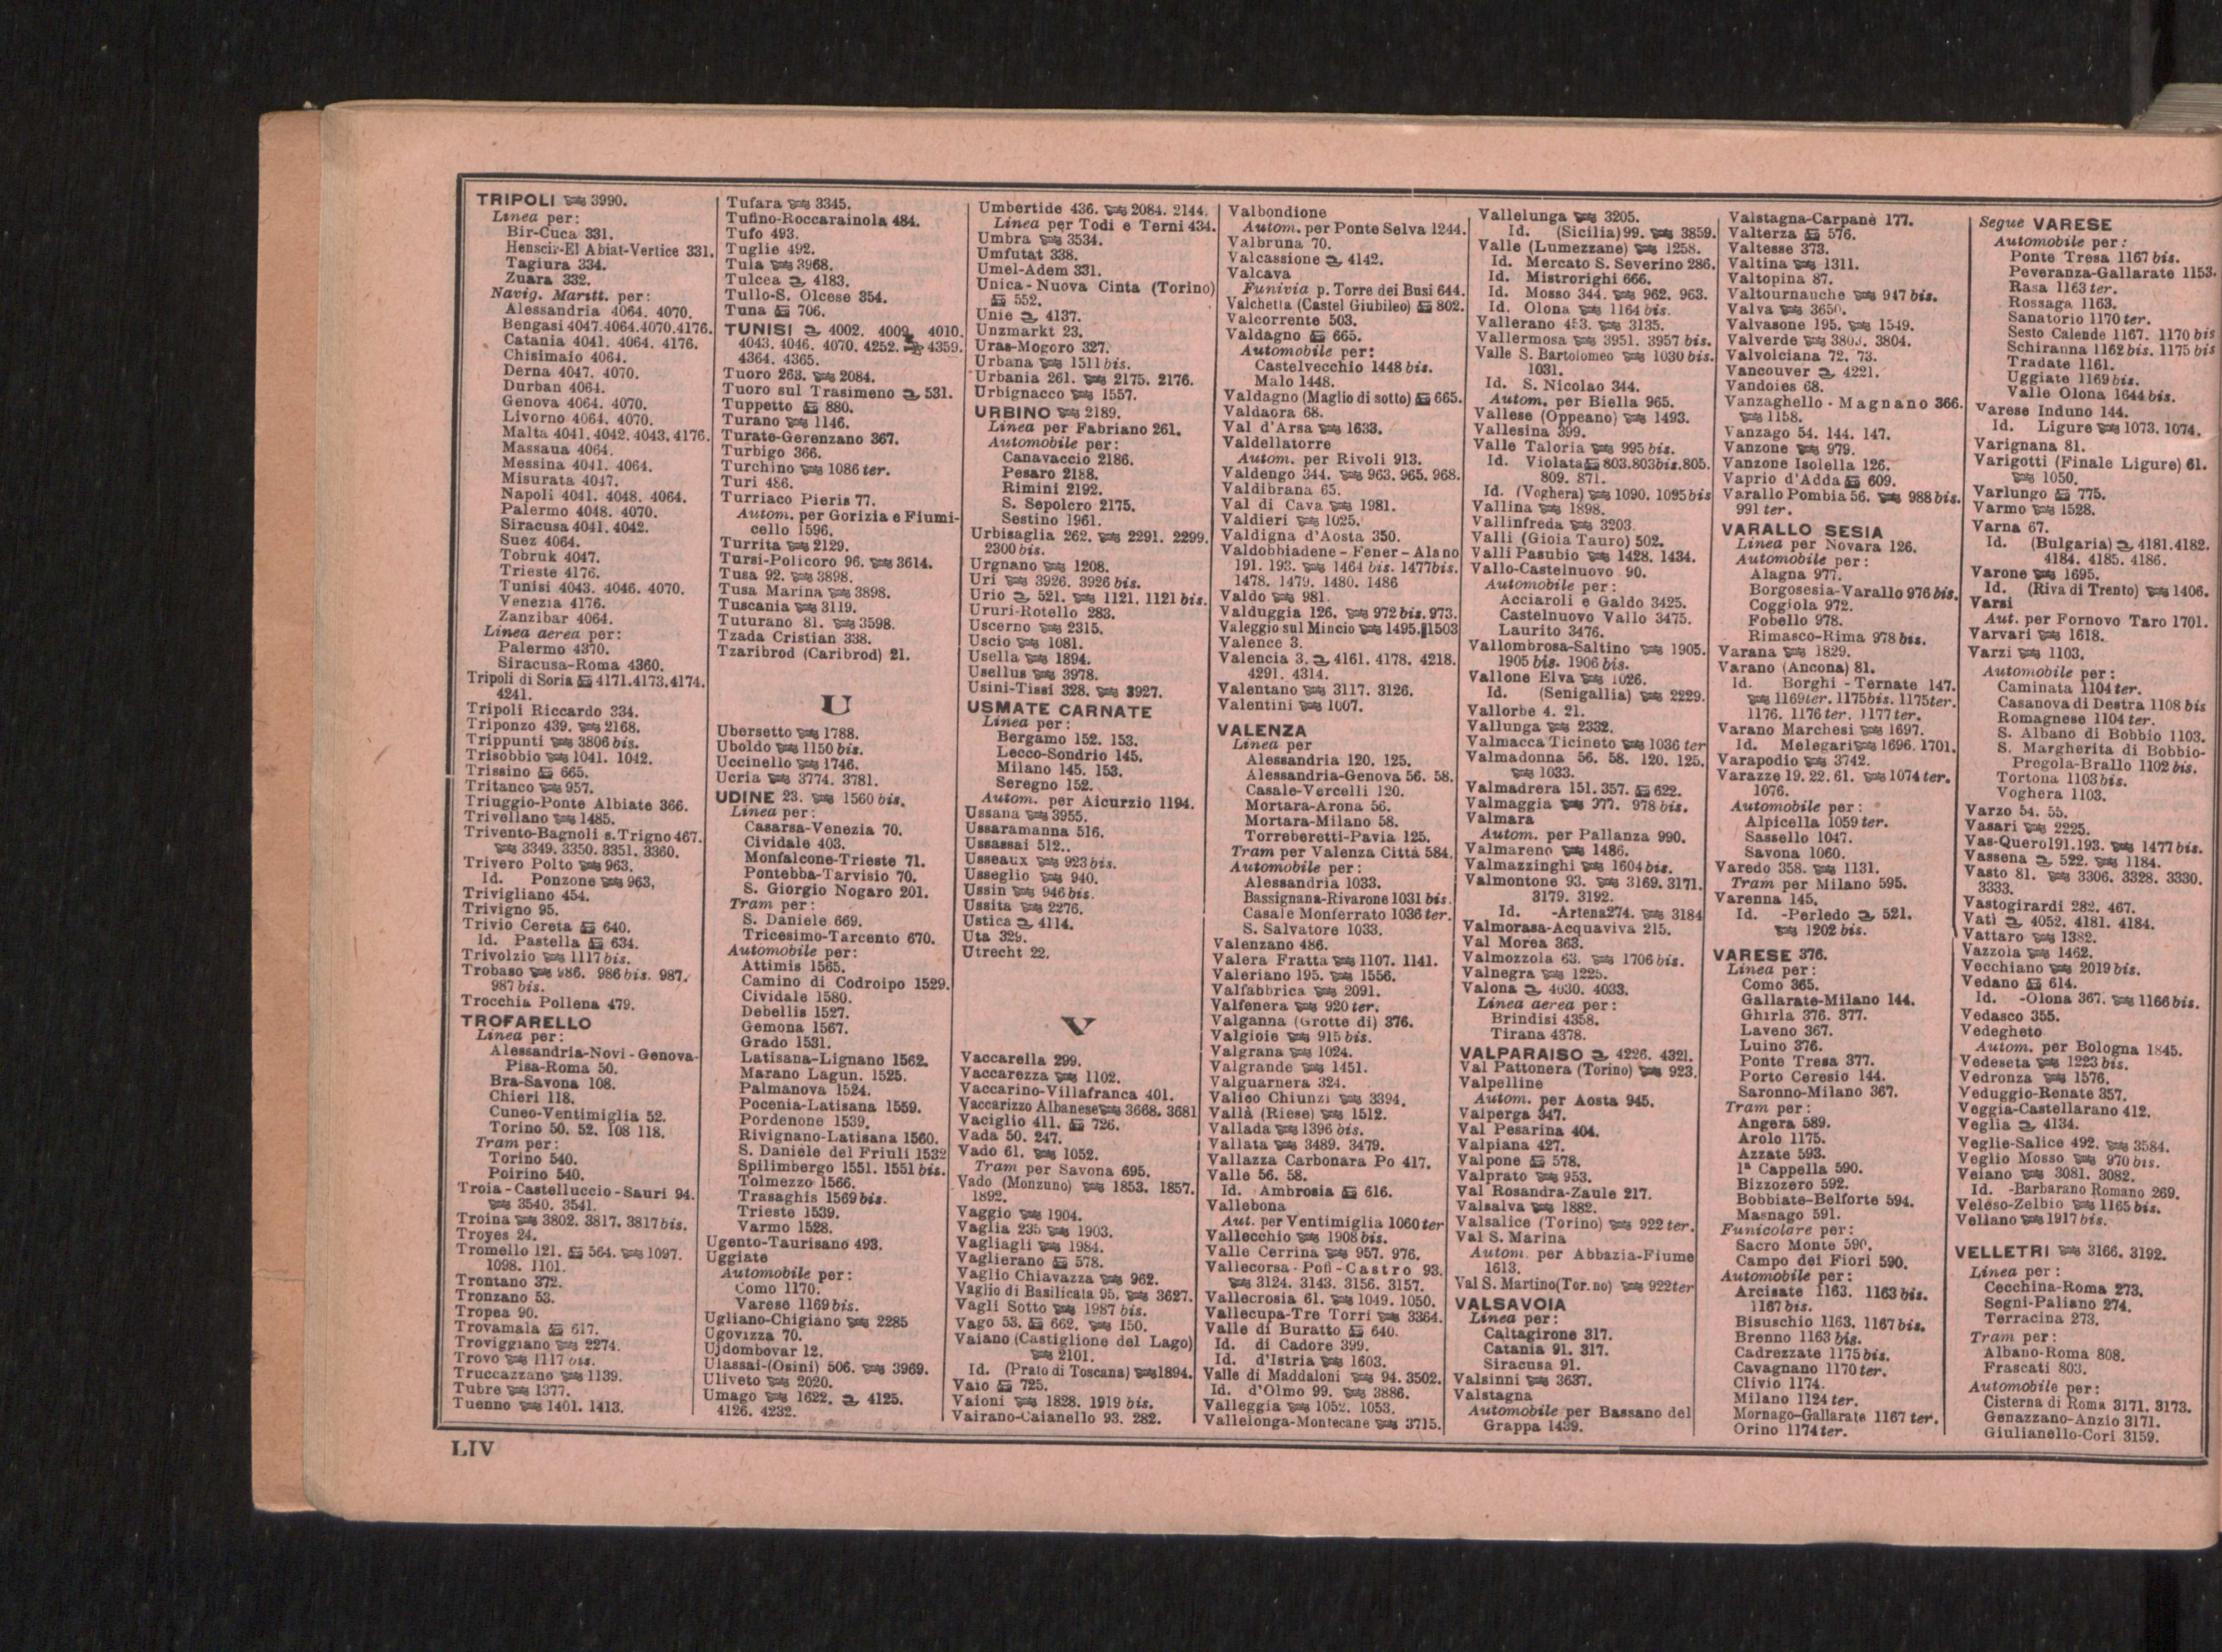 TRIPOLI 3990.
Linea per:
Bir-Cuca 331.
Henscir-El Abiat-Vertice 331.
Tagiura 334.
Zuara 332.
Navig. Maritt. per:
Alessandria 4064. 4070.
Bengasi 4047.4064.4070.4176.
Catania 4041. 4064. 4176.
Chisimaio 4064.
Derna 4047. 4070.
Durban 4064.
Genova 4064. 4070.
Livorno 4064. 4070.
Malta 4041. 4042. 4043. 4176.
Massaua 4064.
Messina 4041. 4064.
Misurata 4047.
Napoli 4041. 4048. 4064.
Palermo 4048. 4070.
Siracusa 4041. 4042.
Suez 4064.
Tobruk 4047.
Trieste 4176.
Tunisi 4043. 4046. 4070.
Venezia 4176.
Zanzibar 4064.
Linea aerea per:
Palermo 4370.
Siracusa-Roma 4360.
Tripoli di Soria 4171.4173.4174.
4241.
Tripoli Riccardo 334.
Triponzo 439. 2168.
Trippunti 3806 bis.
Trisobbio 1041. 1042.
Trissino 665.
Tritanco 957.
Triuggio-Ponte Albiate 366.
Trivellano 1485.
Trivento-Bagnoli s. Trigno 467.
3349. 3350. 3351. 3360.
Trivero Polto 963.
Id. Ponzone 963,
Trivigliano 454.
Trivigno 95.
Trivio Cereta 640.
Id. Pastella 634.
Trivolzio 1117 bis.
Trobaso 986. 986 bis. 987.
987 bis.
Trocchia Pollena 479.
TROFARELLO
Linea per:
Alessandria-Novi-Genova-
Pisa-Roma 50.
Bra-Savona 108.
Chieri 118.
Cuneo-Ventimiglia 52.
Torino 50. 52. 108 118.
Tram per:
Torino 540.
Poirino 540.
Troia-Castelluccio-Sauri 94.
3540. 3541.
Troina 3802. 3817. 3817 bis.
Troyes 24.
Tromello 121. 564. 1097.
1098. 1101.
Trontano 372.
Tronzano 53.
Tropea 90.
Trovamala 617.
Troviggiano 2274.
Trovo 1117 bis.
Truccazzano 1139.
Tubre 1377.
Tuenno 1401. 1413.
Tufara 3345.
Tufino-Roccarainola 484.
Tufo 493.
Tuglie 492.
Tula 3968.
Tulcea 4183.
Tullo-S. Olcese 354.
Tuna 706.
TUNISI 4002. 4009. 4010.
4043. 4046. 4070. 4252. 4359.
4364. 4365.
Tuoro 263. 2084.
Tuoro sul Trasimeno 531.
Tuppetto 880.
Turano 1146.
Turate-Gerenzano 367.
Turbigo 366.
Turchino 1086 ter.
Turi 486.
Turriaco Pieris 77.
Autom. per Gorizia e Fiumi-
cello 1596.
Turrita 2129.
Tursi-Policoro 96. 3614.
Tusa 92. 3898.
Tusa Marina 3898.
Tuscania 3119.
Tuturano 81. 3598.
Tzada Cristian 338.
Tzaribrod (Caribrod) 21.
U
Ubersetto 1788.
Uboldo 1150 bis.
Uccinello 1746.
Ucria 3774. 3781.
UDINE 23. 1560 bis.
Linea per:
Casarsa-Venezia 70.
Cividale 403.
Monfalcone-Trieste 71.
Pontebba-Tarvisio 70.
S. Giorgio Nogaro 201.
Tram per:
S. Daniele 669.
Tricesimo-Tarcento 670.
Automobile per:
Attimis 1565.
Camino di Codroipo 1529.
Cividale 1580.
Debellis 1527.
Gemona 1567.
Grado 1531.
Latisana-Lignano 1562.
Marano Lagun. 1525.
Palmanova 1524.
Pocenia-Latisana 1559.
Pordenone 1539.
Rivignano-Latisana 1560.
S. Daniele del Friuli 1532
Spilimbergo 1551. 1551 bis.
Tolmezzo 1566.
Trasaghis 1569 bis.
Trieste 1539.
Varmo 1528.
Ugento-Taurisano 493.
Uggiate
Automobile per:
Como 1170.
Varese 1169 bis.
Ugliano-Chigiano 2285
Ugovizza 70.
Ujdombovar 12.
Ulassai-(Osini) 506. 3969.
Uliveto 2020.
Umago 1622. 4125.
4126. 4232.
Umbertide 436. 2084. 2144.
Linea per Todi e Terni 434.
Umbra 3534.
Umfutat 338.
Umel-Adem 331.
Unica-Nuova Cinta (Torino)
552.
Unie 4137.
Unzmarkt 23.
Uras-Mogoro 327.
Urbana 1511 bis.
Urbania 261. 2175. 2176.
Urbignacco 1557.
URBINO 2189.
Linea per Fabriano 261.
Automobile per:
Canavaccio 2186.
Pesaro 2188.
Rimini 2192.
S. Sepolcro 2175.
Sestino 1961.
Urbisaglia 262. 2291. 2299.
2300 bis.
Urgnano 1208.
Uri 3926. 3926 bis.
Urio 521. 1121. 1121 bis.
Ururi-Rotello 283.
Uscerno 2315.
Uscio 1081.
Usella 1894.
Usellus 3978.
Usini-Tissi 328. 3927.
USMATE CARNATE
Linea per:
Bergamo 152. 153.
Lecco-Sondrio 145.
Milano 145. 153.
Seregno 152.
Autom. per Aicurzio 1194.
Ussana 3955.
Ussaramanna 516.
Ussassai 512..
Usseaux 923 bis.
Usseglio 940.
Ussin 946 bis.
Ussita 2276.
Ustica 4114.
Uta 329.
Utrecht 22.
V
Vaccarella 299.
Vaccarezza 1102.
Vaccarino-Villafranca 401.
Vaccarizzo Albanese 3668. 3681
Vaciglio 411. 726.
Vada 50. 247.
Vado 61. 1052.
Tram per Savona 695.
Vado (Monzuno) 1853. 1857.
1892.
Vaggio 1904.
Vaglia 235 1903.
Vagliagli 1984.
Vaglierano 578.
Vaglio Chiavazza 962.
Vaglio di Basilicata 95. 3627.
Vagli Sotto 1987 bis.
Vago 53. 662. 150.
Vaiano (Castiglione del Lago)
2101.
Id. (Prato di Toscana) 1894.
Vaio 725.
Vaioni 1828. 1919 bis.
Vairano-Caianello 93. 282.
Valbondione
Autom. per Ponte Selva 1244.
Valbruna 70.
Valcassione 4142.
Valcava
Funivia p. Torre dei Busi 644.
Valchetta (Castel Giubileo) 802.
Valcorrente 503.
Valdagno 665.
Automobile per:
Castelvecchio 1448 bis.
Malo 1448.
Valdagno (Maglio di sotto) 665.
Valdaora 68.
Val d'Arsa 1633.
Valdellatorre
Autom. per Rivoli 913.
Valdengo 344. 963. 965. 968.
Valdibrana 65.
Val di Cava 1981.
Valdieri 1025.
Valdigna d'Aosta 350.
Valdobbiadene-Fener-Alano
191. 193. 1464 bis. 1477bis.
1478. 1479. 1480. 1486
Valdo 981.
Valduggia 126. 972 bis. 973.
Valeggio sul Mincio 1495. 1503
Valence 3.
Valencia 3. 4161. 4178. 4218.
4291. 4314.
Valentano 3117. 3126.
Valentini 1007.
VALENZA
Linea per
Alessandria 120. 125.
Alessandria-Genova 56. 58.
Casale-Vercelli 120.
Mortara-Arona 56.
Mortara-Milano 58.
Torreberetti-Pavia 125.
Tram per Valenza Città 584.
Automobile per:
Alessandria 1033.
Bassignana-Rivarone 1031 bis.
Casale Monferrato 1036 ter.
S. Salvatore 1033.
Valenzano 486.
Valera Fratta 1107. 1141.
Valeriano 195. 1556.
Valfabbrica 2091.
Valfenera 920 ter.
Valganna (Grotte di) 376.
Valgioie 915 bis.
Valgrana 1024.
Valgrande 1451.
Valguarnera 324.
Valico Chiunzi 3394.
Vallà (Riese) 1512.
Vallada 1396 bis.
Vallata 3489. 3479.
Vallazza Carbonara Po 417.
Valle 56. 58.
Id. Ambrosia 616.
Vallebona
Aut. per Ventimiglia 1060 ter
Vallecchio 1908 bis.
Valle Cerrina 957. 976.
Vallecorsa-Pofi-Castro 93.
3124. 3143. 3156. 3157.
Vallecrosia 61. 1049. 1050.
Vallecupa-Tre Torri 3364.
Valle di Buratto 640.
Id. di Cadore 399.
Id. d'Istria 1603.
Valle di Maddaloni 94. 3502.
Id. d'Olmo 99. 3886.
Valleggia 1052. 1053.
Vallelonga-Montecane 3715.
Vallelunga 3205.
Id. (Sicilia) 99. 3859.
Valle (Lumezzane) 1258.
Id. Mercato S. Severino 286.
Id. Mistrorighi 666.
Id. Mosso 344. 962. 963.
Id. Olona 1164 bis.
Vallerano 453. 3135.
Vallermosa 3951. 3957 bis.
Valle S. Bartolomeo 1030 bis.
1031.
Id. S. Nicolao 344.
Autom. per Biella 965.
Vallese (Oppeano) 1493.
Vallesina 399.
Valle Taloria 995 bis.
Id. Violata 803.803bis.805.
809. 871.
Id. (Voghera) 1090. 1095 bis
Vallina 1898.
Vallinfreda 3203.
Valli (Gioia Tauro) 502.
Valli Pasubio 1428. 1434.
Vallo-Castelnuovo 90.
Automobile per:
Acciaroli e Galdo 3425.
Castelnuovo Vallo 3475.
Laurito 3476.
Vallombrosa-Saltino 1905.
1905 bis. 1906 bis.
Vallone Elva 1026.
Id. (Senigallia) 2229.
Vallorbe 4. 21.
Vallunga 2332.
Valmacca Ticineto 1036 ter
Valmadonna 56. 58. 120. 125.
1033.
Valmadrera 151. 357. 622.
Valmaggia 977. 978 bis.
Valmara
Autom. per Pallanza 990.
Valmareno 1486.
Valmazzinghi 1604 bis.
Valmontone 93. 3169. 3171.
3179. 3192.
Id. -Artena 274. 3184
Valmorasa-Acquaviva 215.
Val Morea 363.
Valmozzola 63. 1706 bis.
Valnegra 1225.
Valona 4030. 4033.
Linea aerea per:
Brindisi 4358.
Tirana 4378.
VALPARAISO 4226. 4321.
Val Pattonera (Torino) 923.
Valpelline
Autom. per Aosta 945.
Valperga 347.
Val Pesarina 404.
Valpiana 427.
Valpone 578.
Valprato 953.
Val Rosandra-Zaule 217.
Valsalva 1882.
Valsalice (Torino) 922 ter.
Val S. Marina
Autom. per Abbazia-Fiume
1613.
Val S. Martino (Tor.no) 922ter
VALSAVOIA
Linea per:
Caltagirone 317.
Catania 91. 317.
Siracusa 91.
Valsinni 3637.
Valstagna
Automobile per Bassano del
Grappa 1439.
Valstagna-Carpanè 177.
Valterza 576.
Valtesse 373.
Valtina 1311.
Valtopina 87.
Valtournanche 947 bis.
Valva 3650.
Valvasone 195. 1549.
Valverde 3803. 3804.
Valvolciana 72. 73.
Vancouver 4221.
Vandoies 68.
Vanzaghello-Magnano 366.
1158.
Vanzago 54. 144. 147.
Vanzone 979.
Vanzone Isolella 126.
Vaprio d'Adda 609.
Varallo Pombia 56. 988 bis.
991 ter.
VARALLO SESIA
Linea per Novara 126.
Automobile per:
Alagna 977.
Borgosesia-Varallo 976 bis.
Coggiola 972.
Fobello 978.
Rimasco-Rima 978 bis.
Varana 1829.
Varano (Ancona) 81.
Id. Borghi-Ternate 147.
1169ter. 1175bis. 1175ter.
1176. 1176 ter. 1177 ter.
Varano Marchesi 1697.
Id. Melegari 1696. 1701.
Varapodio 3742.
Varazze 19. 22. 61. 1074 ter.
1076.
Automobile per:
Alpicella 1059 ter.
Sassello 1047.
Savona 1060.
Varedo 358. 1131.
Tram per Milano 595.
Varenna 145.
Id. -Perledo 521.
1202 bis.
VARESE 376.
Linea per:
Como 365.
Gallarate-Milano 144.
Ghirla 376. 377.
Laveno 367.
Luino 376.
Ponte Tresa 377.
Porto Ceresio 144.
Saronno-Milano 367.
Tram per:
Angera 589.
Arolo 1175.
Azzate 593.
1ª Cappella 590.
Bizzozero 592.
Bobbiate-Belforte 594.
Masnago 591.
Funicolare per:
Sacro Monte 590.
Campo dei Fiori 590.
Automobile per:
Arcisate 1163. 1163 bis.
1167 bis.
Bisuschio 1163. 1167 bis.
Brenno 1163 bis.
Cadrezzate 1175 bis.
Cavagnano 1170 ter.
Clivio 1174.
Milano 1124 ter.
Mornago-Gallarate 1167 ter.
Orino 1174 ter.
Segue VARESE
Automobile per:
Ponte Tresa 1167 bis.
Peveranza-Gallarate 1153.
Rasa 1163 ter.
Rossaga 1163.
Sanatorio 1170 ter.
Sesto Calende 1167. 1170 bis
Schiranna 1162 bis. 1175 bis
Tradate 1161.
Uggiate 1169 bis.
Valle Olona 1644 bis.
Varese Induno 144.
Id. Ligure 1073. 1074.
Varignana 81.
Varigotti (Finale Ligure) 61.
1050.
Varlungo 775.
Varmo 1528.
Varna 67.
Id. (Bulgaria) 4181.4182.
4184. 4185. 4186.
Varone 1695.
Id. (Riva di Trento) 1406.
Varsi
Aut. per Fornovo Taro 1701.
Varvari 1618.
Varzi 1103.
Automobile per:
Caminata 1104 ter.
Casanova di Destra 1108 bis
Romagnese 1104 ter.
S. Albano di Bobbio 1103.
S. Margherita di Bobbio-
Pregola-Brallo 1102 bis.
Tortona 1103 bis.
Voghera 1103.
Varzo 54. 55.
Vasari 2225.
Vas-Quero 191.193. 1477 bis.
Vassena 522. 1184.
Vasto 81. 3306. 3328. 3330.
3333.
Vastogirardi 282. 467.
Vatì 4052. 4181. 4184.
Vattaro 1382.
Vazzola 1462.
Vecchiano 2019 bis.
Vedano 614.
Id. -Olona 367. 1166 bis.
Vedasco 355.
Vedegheto
Autom. per Bologna 1845.
Vedeseta 1223 bis.
Vedronza 1576.
Veduggio-Renate 357.
Veggia-Castellarano 412.
Veglia 4134.
Veglie-Salice 492. 3584.
Veglio Mosso 970 bis.
Veiano 3081. 3082.
Id. -Barbarano Romano 269.
Veleso-Zelbio 1165 bis.
Veliano 1917 bis.
VELLETRI 3166. 3192.
Linea per:
Cecchina-Roma 273.
Segni-Paliano 274.
Terracina 273.
Tram per:
Albano-Roma 808.
Frascati 803.
Automobile per:
Cisterna di Roma 3171. 3173.
Genazzano-Anzio 3171.
Giulianello-Cori 3159.
LIV